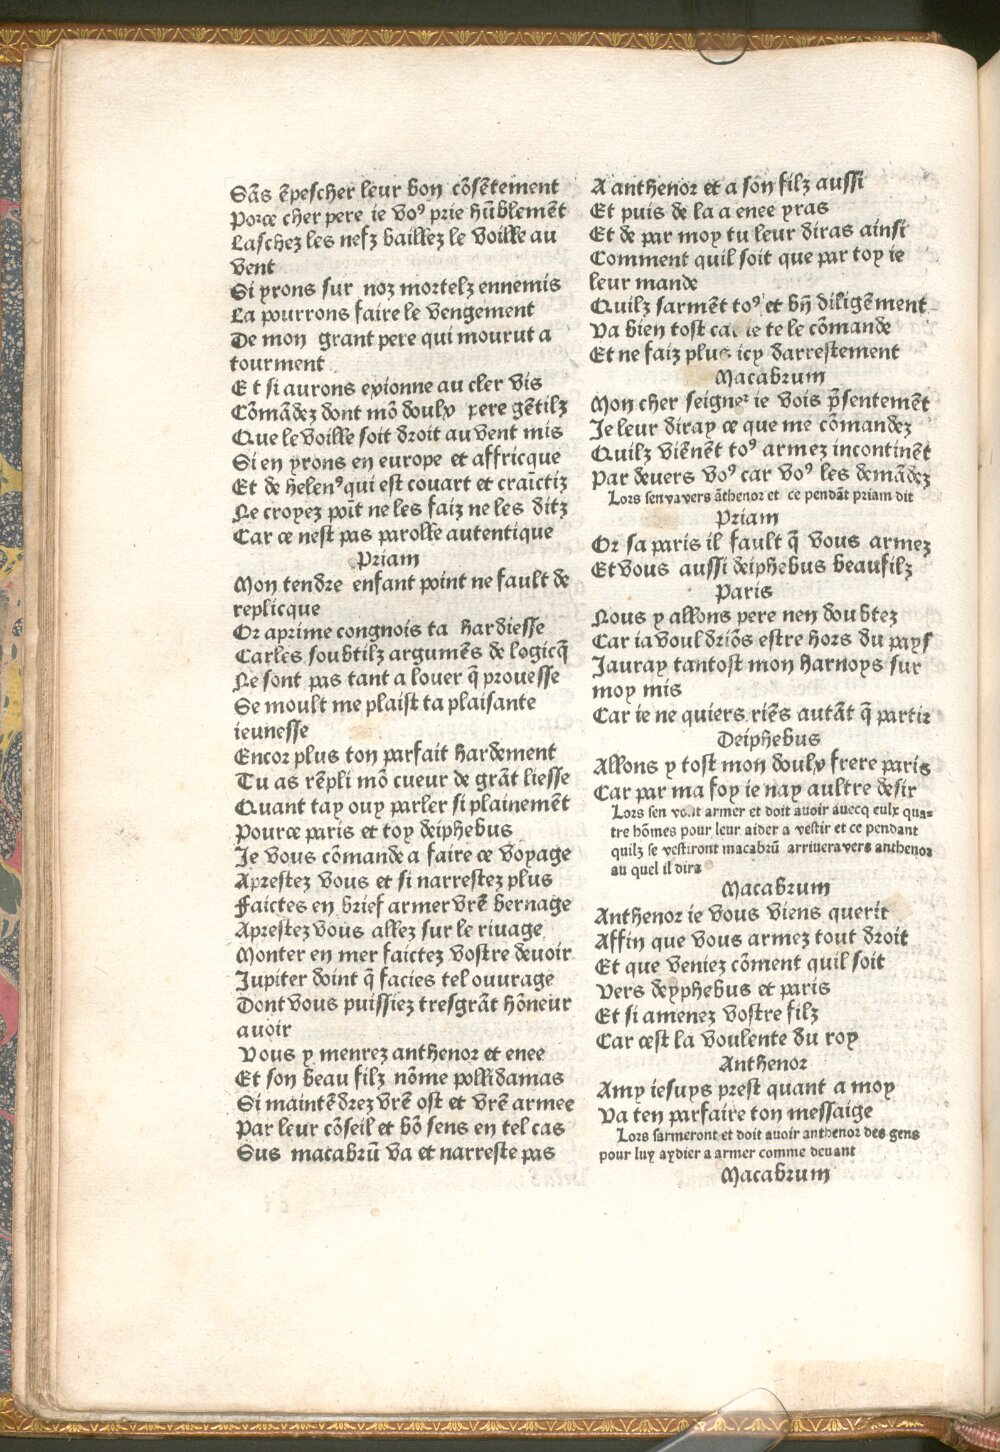 Sãs ẽpescher leur bon cõsẽtement
Porce cher pere ie voꝰ prie hũblemẽt
Laschez les nefz baillez le voille au
vent
Si yrons sur noz mortelz ennemis
La pourrons faire le vengement
De mon grant pere qui mourut a
tourment
Et si aurons exionne au cler vis
Cõmãdez dont mõ doulx pere gẽtilz
Que le voille soit droit au vent mis
Si en yrons en europe et affricque
Et de helenꝰ qui est couart et craĩctiz
Ne croyez poĩt ne les faiz ne les ditz
Car ce nest pas parolle autentique
Priam
Mon tendre enfant point ne fault de
replicque
Or aprime congnois ta hardiesse
Car les soubtilz argumẽs de logicq̃
Ne sont pas tant a louer q̃ prouesse
Se moult me plaist ta plaisante
ieunesse
Encor plus ton parfait hardement
Tu as rẽpli mõ cueur de grãt liesse
Quant tay ouy parler si plainemẽt
Pource paris et toy deiphebus
Je vous cõmande a faire ce voyage
Aprestez vous et si narrestez plus
Faictes en brief armer vr̃e bernage
Aprestez vous allez sur le riuage
Monter en mer faictez vostre deuoir
Jupiter doint q̃ facies tel ouurage
Dont vous puissiez tresgrãt hõneur
auoir
Vous y menrez anthenor et enee
Et son beau filz nõme pollidamas
Si maintẽdrez vr̃e ost et vr̃e armee
Par leur cõseil et bõ sens en tel cas
Sus macabrũ va et narreste pas
A anthenor et a son filz aussi
Et puis de la a enee yras
Et de par moy tu leur diras ainsi
Comment quil soit que par toy ie
leur mande
Quilz sarmẽt toꝰ et bñ diligẽment
Va bien tost car ie te le cõmande
Et ne faiz plus icy darrestement
Macabrum
Mon cher seigneꝛ ie vois p̃sentemẽt
Je leur diray ce que me cõmandez
Quilz viẽnẽt toꝰ armez incontinẽt
Par deuers voꝰ car voꝰ les demãdez
Lors sen va vers ãthenor et ce pendãt priam dit
Priam
Or sa paris il fault q̃ vous armez
Et vous aussi deiphebus beau filz
Paris
Nous y allons pere nen doubtez
Car ia vouldriõs estre hors du pays
Jauray tantost mon harnoys sur
moy mis
Car ie ne quiers riẽs autãt q̃ partir
Deiphebus
Allons y tost mon doulx frere paris
Car par ma foy ie nay aultre desir
Lors sen vont armer et doit auoir auecq eulx qua=
tre hõmes pour leur aider a vestir et ce pendant
quilz se vestiront macabrũ arriuera vers anthenor
au quel il dira
Macabrum
Anthenor ie vous viens querir
Affin que vous armez tout droit
Et que veniez cõment quil soit
Vers deyphebus et paris
Et si amenez vostre filz
Car cest la voulente du roy
Anthenor
Amy ie suys prest quant a moy
Va ten parfaire ton messaige
Lors sarmeront et doit auoir anthenor des gens
pour luy aydier a armer comme deuant
Macabrum